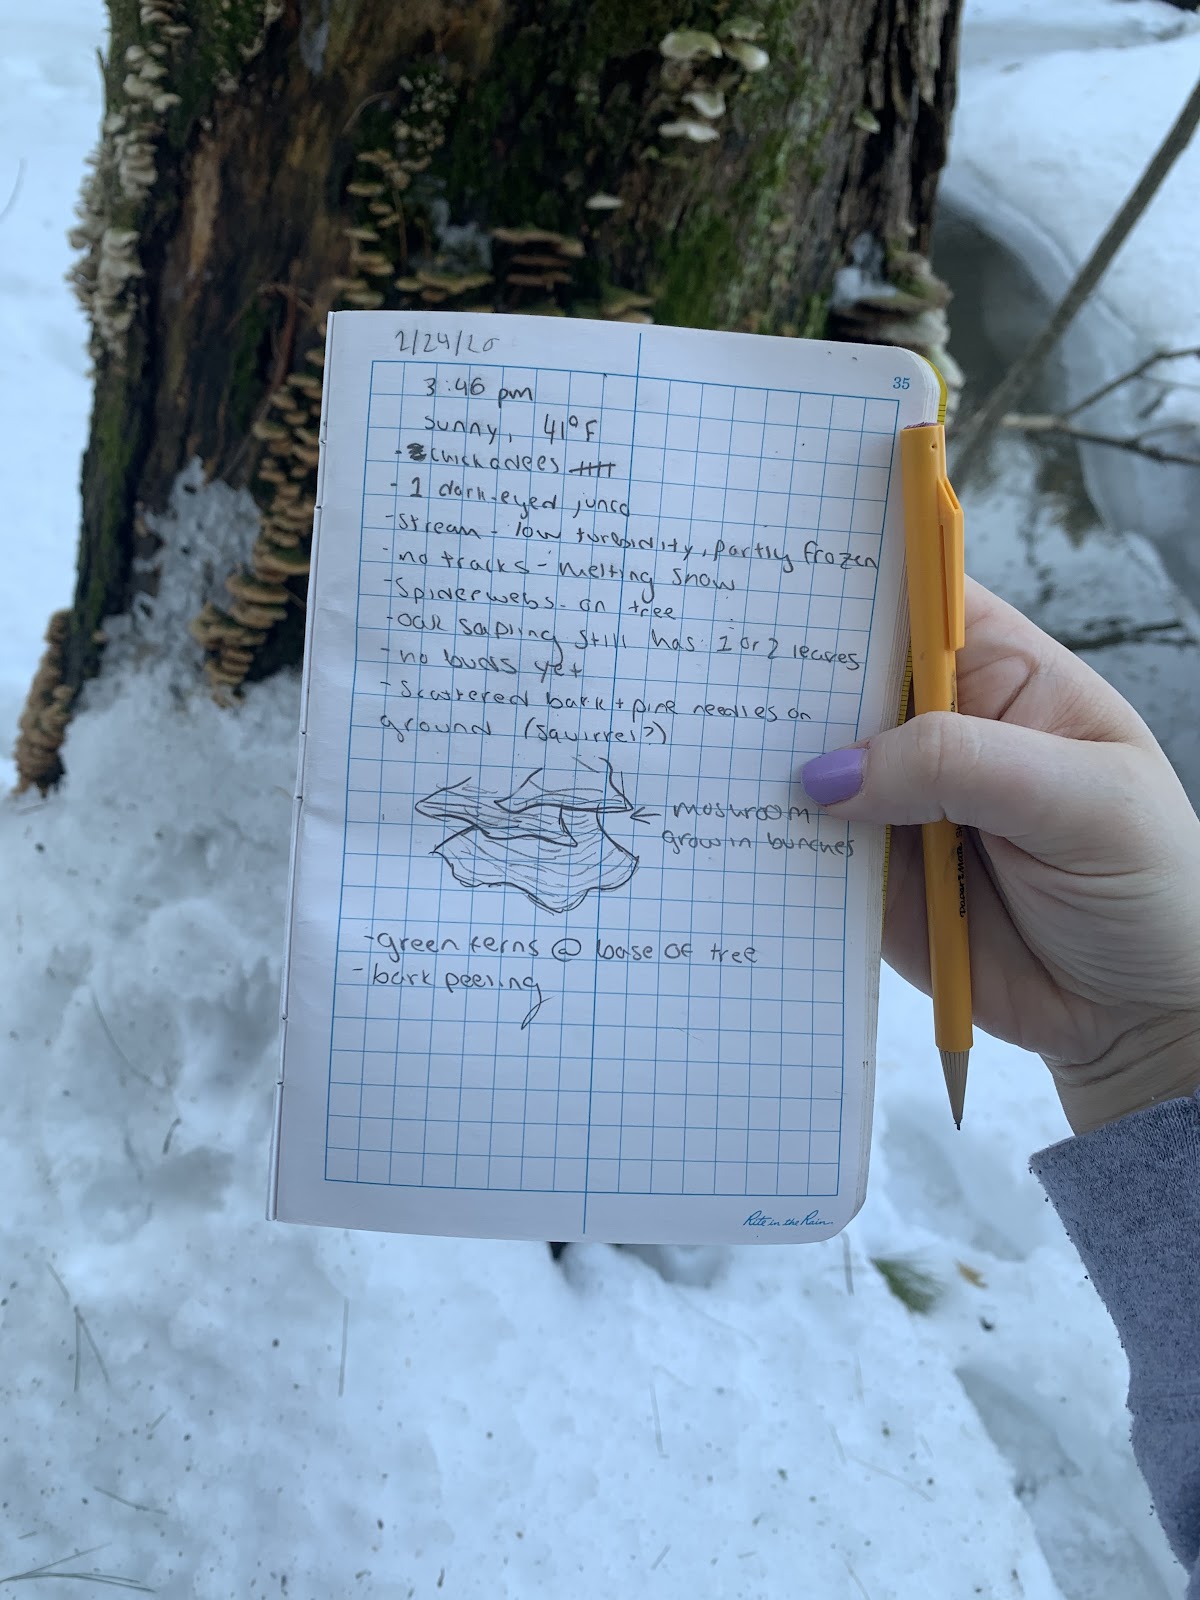 2/24/20
35
3:46 pm
sunny, 41°F
- chickadees
- 1 dark-eyed junco
- stream - low turbidity, partly frozen
- no tracks - melting snow
- Spiderwebs on tree
- oak sapling still has 1 or 2 leaves
- no buds yet
- scattered bark + pine needles on
ground (squirrel?)
← mushroom
grow in bunches
- green ferns @ base of tree
- bark peeling
Rite in the Rain
PaperMate